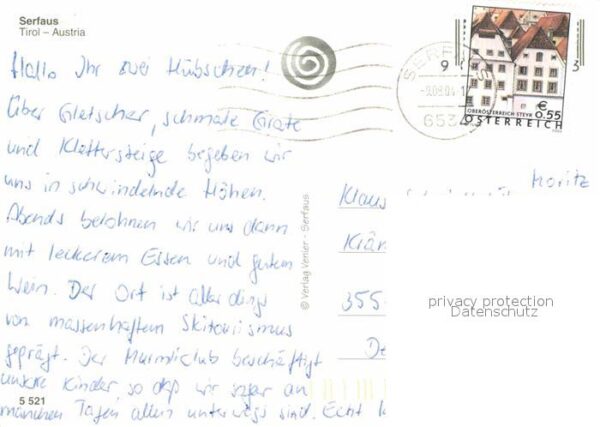 Serfaus
Tirol – Austria
Hallo Ihr zwei Hübschen!
Über Gletscher, schmale Grate
und Klettersteige begeben wir
uns in schwindelnde Höhen.
Abends belohnen wir uns dann
mit leckerem Essen und gutem
Wein. Der Ort ist allerdings
von massenhaftem Skitourismus
geprägt. Der Murmliclub beschäftigt
unsere Kinder, so daß wir sogar an
manchen Tagen allein unterwegs sind. Echt
5 521
© Verlag Venier - Serfaus
SERFAUS
-9.08.04
6534
9
3
€
0.55
OBERÖSTERREICH STEYR
ÖSTERREICH
Moritz
Klaus
355
privacy protection
Datenschutz